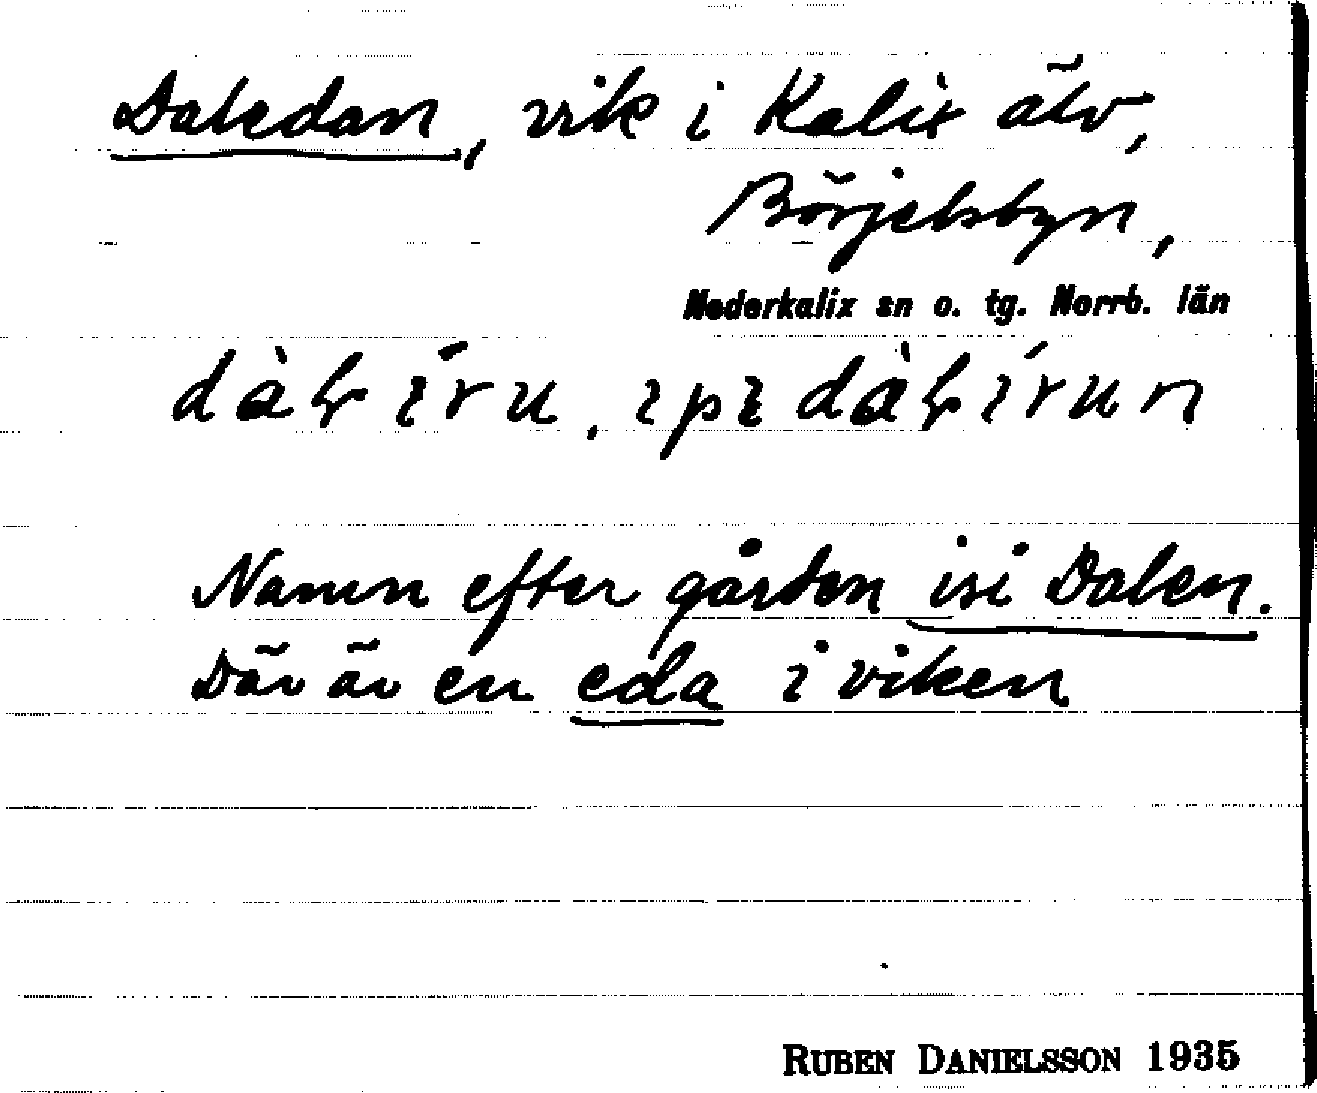 Daledan, vik i Kalix älv,
Börjelsbyn,
Nederkalix sn o. tg. Norrb. län
Namn efter gården isi Dalen.
Där är en eda i viken
RUBEN DANIELSSON 1935